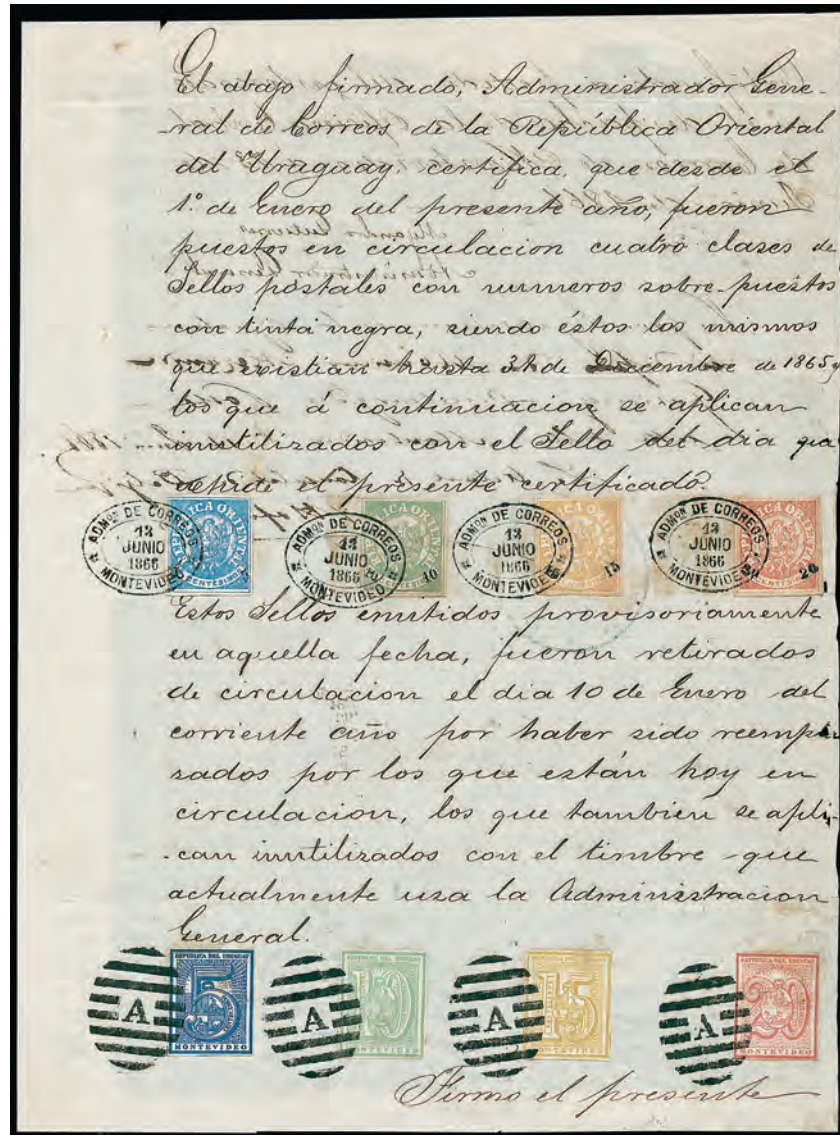 El abajo firmado, Administrador Gene-
ral de Correos de la República Oriental
del Uraguay. certifica, que desde el
1º de Enero del presente año, fueron
puestos en circulacion cuatro clases de
Sellos postales con numeros sobre-puestos
con tinta negra, siendo éstos los mismos
que existian hasta 31 de Diciembre de 1865, y
los que á continuacion se aplican
inutilizados con el Sello del dia que
se pide el presente certificado.
ADMON DE CORREOS 13 JUNIO 1866 MONTEVIDEO REPUBLICA ORIENTAL CENTESIMOS 5
ADMON DE CORREOS 13 JUNIO 1866 MONTEVIDEO 10
ADMON DE CORREOS 13 JUNIO 1866 MONTEVIDEO REPUBLICA ORIENTAL CENTESIMOS 15
ADMON DE CORREOS 13 JUNIO 1866 MONTEVIDEO REPUBLICA ORIENTAL CENTESIMOS 20
Estos Sellos emitidos provisoriamente
en aquella fecha, fueron retirados
de circulacion el dia 10 de Enero del
corriente año por haber sido reempla
sados por los que están hoy en
circulacion, los que tambien se apli-
-can inutilizados con el timbre que
actualmente usa la Administracion
General.
A REPUBLICA DEL URUGUAY 5 MONTEVIDEO
A REPUBLICA DEL URUGUAY 10 MONTEVIDEO
A REPUBLICA DEL URUGUAY 15 MONTEVIDEO
A REPUBLICA DEL URUGUAY 20 MONTEVIDEO
Firmo el presente